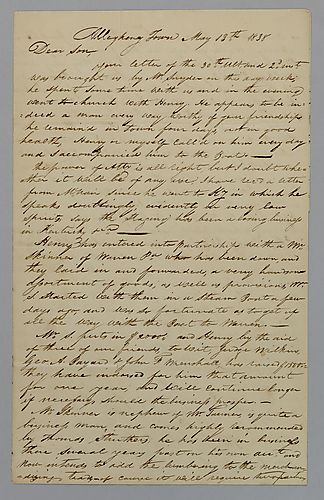 Allegheny Town May 13th 1838
Dear Son
your letter of the 30th Ult and 2d inst
was brought us by Mr Snyder on the day week
he spent some time with us and in the evening
went to church with Henry. He appears to be in-
deed a man every way worthy of your friendship
he remain'd in Town four days, not in good
health, Henry or myself call'd on him every day
and I accompanied him to the Boat —
The power of Atty is all right but I doubt whe-
ther it will be of any use, I have rec'd a letter
from since he went to Ky in which he
speaks doubtingly, evidently in very low
spirits, says the Staging has been a losing business
in Kentucky
Henry has entered into partnership with a Mr
Skinner of Warren Pa who has been down and
they laid in and forwarded, a very handsome
assortment of goods, as well as provisions, Mr
S started with them in a Steam Boat a few
days ago, and was so fortunate as to get up
all the way with the Boat to Warren —
Mr S. puts in and Henry by the aid
of three of our friends, to wit, Judge Wilkins,
Geo A. Bayard & John F has raised
they have endorsed for him that amount
for one year, and will continue longer
if necessary should the business prosper —
Mr Skinner is nephew of Mr is quite a
business man, and comes highly recommended
by Thomas Struthers, he has been in business
there several years past on his own acct and
now intends to add the lumbering to the merchan-
dizing trade, of course it will require two partners